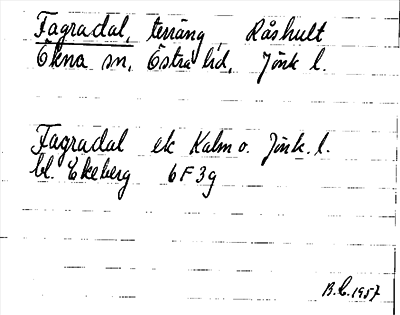 Fagradal, terräng Råshult
Ökna sn, Östra hd, Jönk l.
Fagradal ek Kalm o. Jönk. l.
bl. Ekeberg 6F3g
B.L. 1957